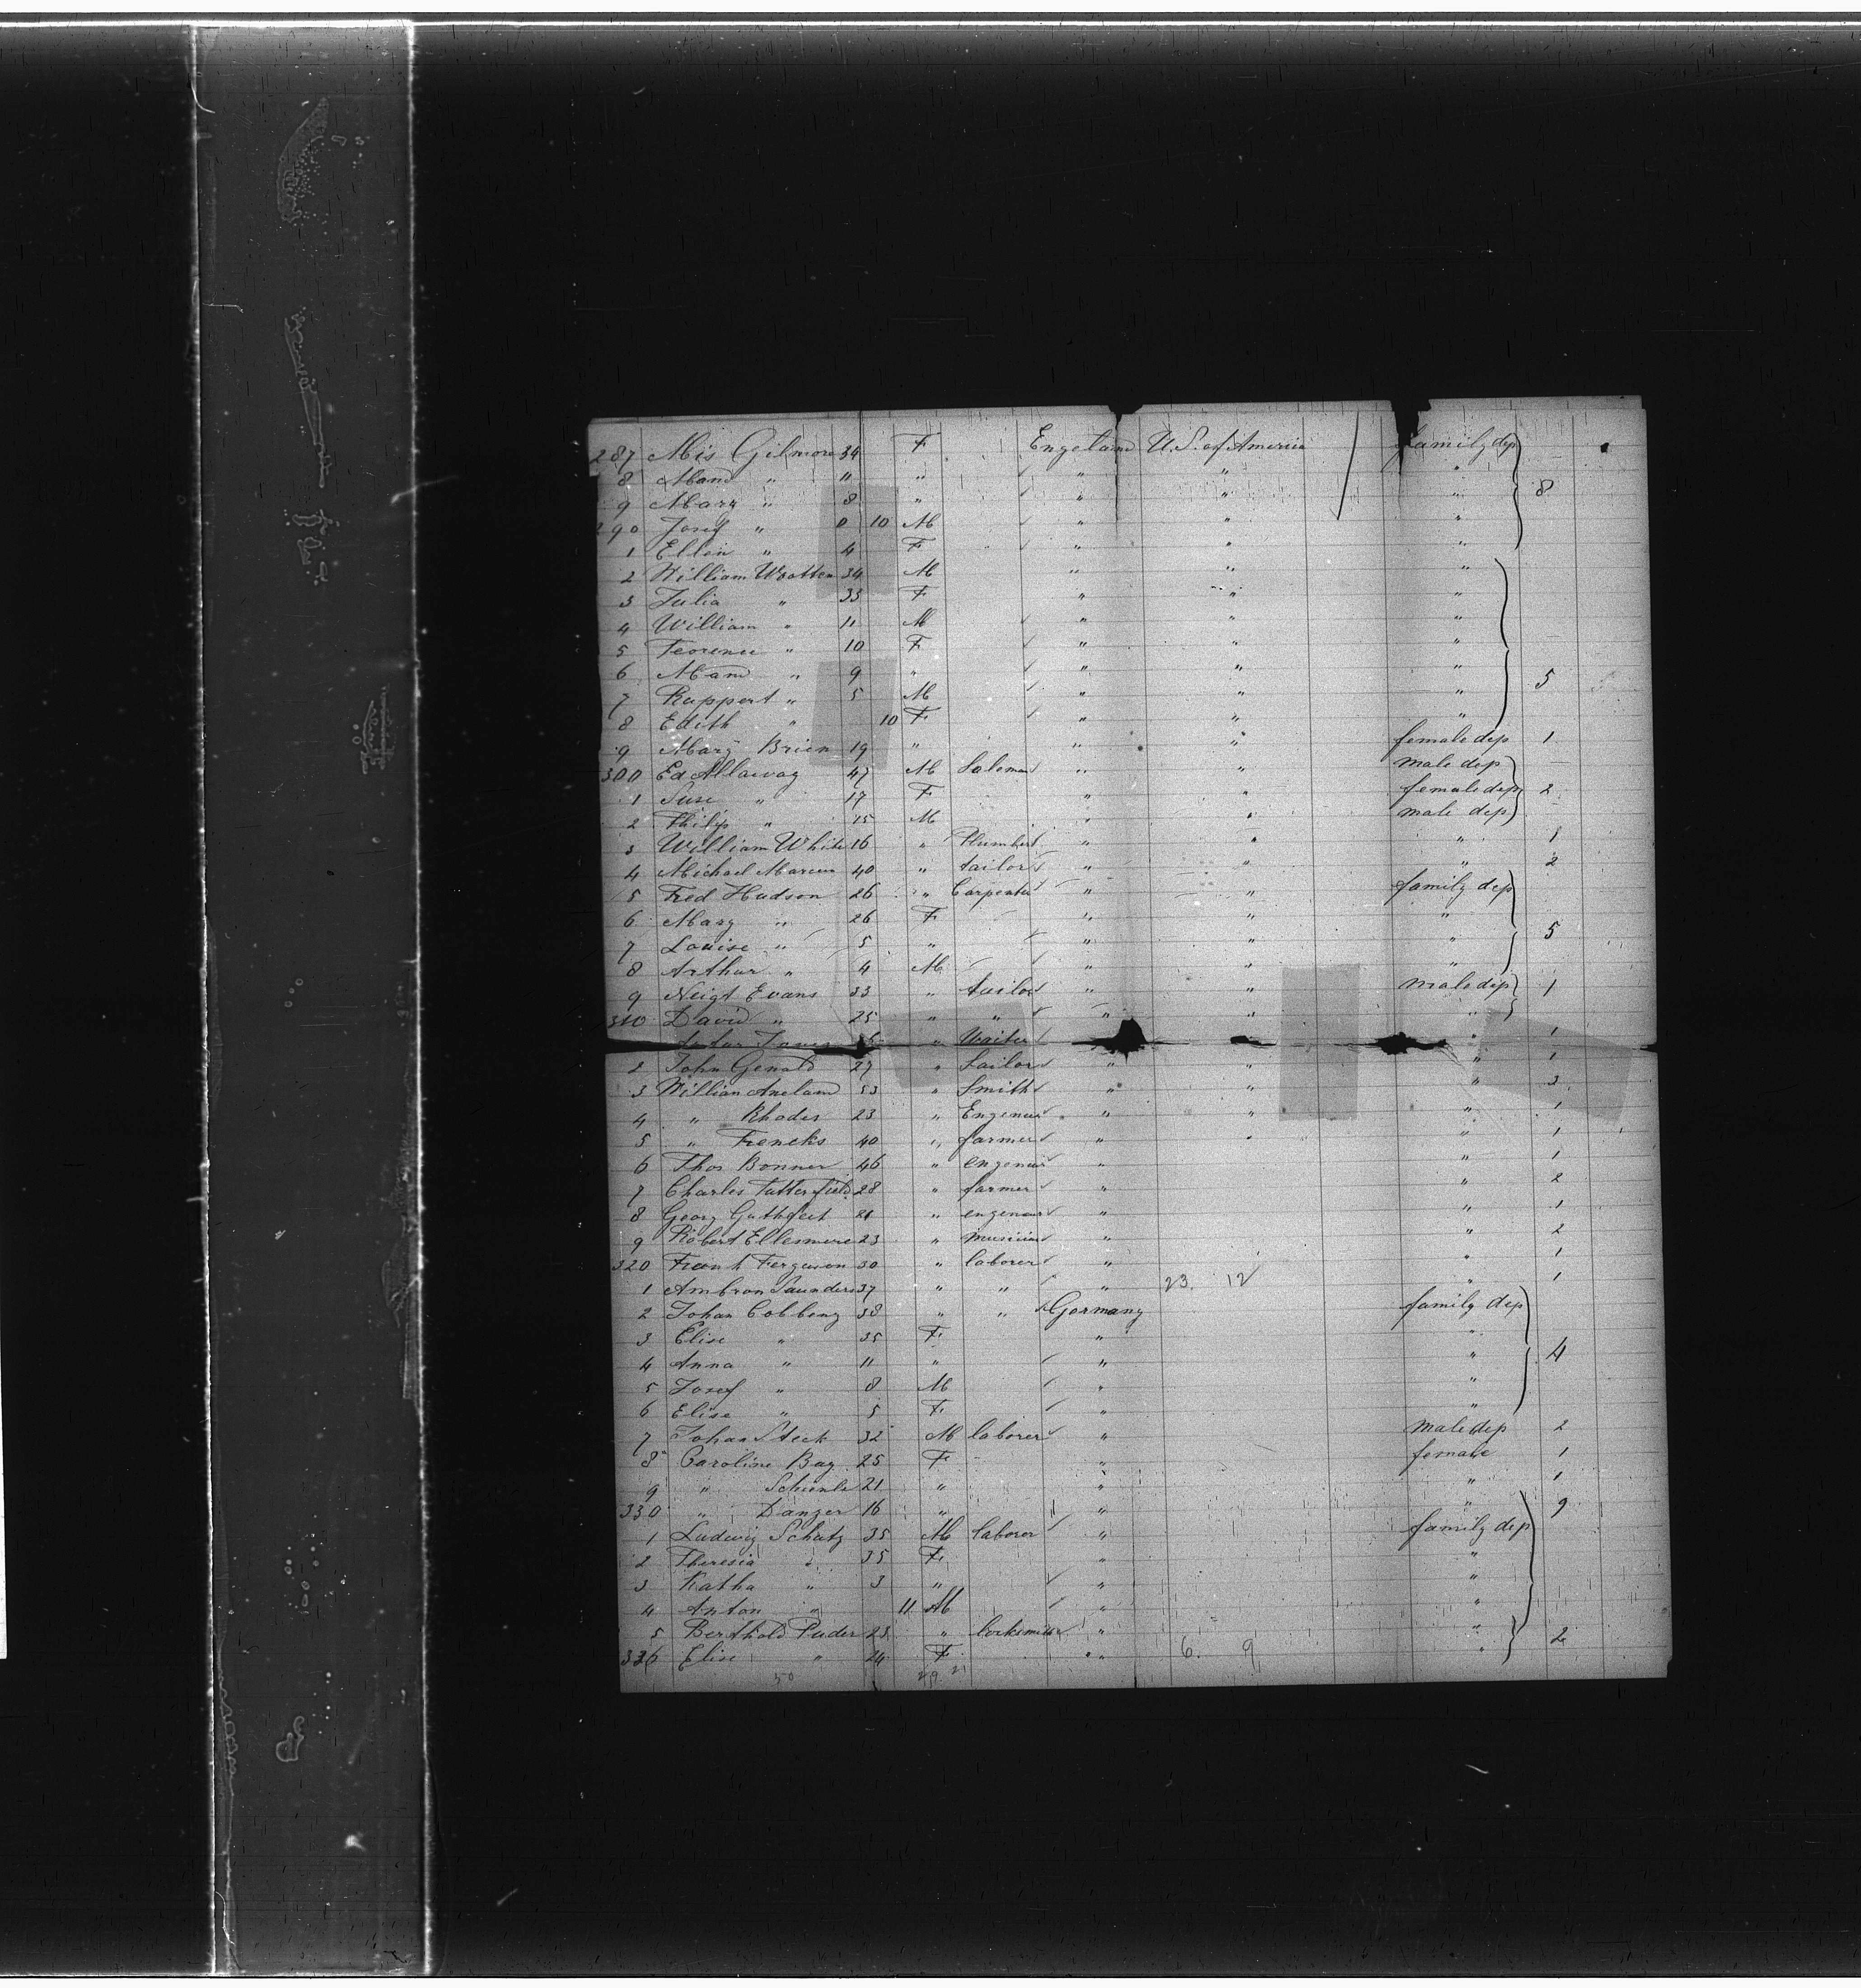 287 Mis Gilmore 34 F Engeland U.S. of America family dep
8 Maud " 11 " " " "
9 Mary " 8 " " " " 8
290 Josef " 8 10 M " " "
1 Ellen " 4 F " " "
2 William Wootten 34 M " " "
3 Julia " 33 F " " "
4 William " 11 M " " "
5 Feorence " 10 F " " "
6 Maud " 9 " " " "
7 Ruppert " 5 M " " " 5
8 Edith " 10 F " " "
9 Mary Brien 19 " " " female dep 1
300 Ed Allaway 47 M " " male dep
1 Suse " 17 F " " female dep 2
2 Philip " 15 M " " male dep
3 William White 16 " Plumber " " " 1
4 Michael 40 " tailor " " " 2
5 Fred Hudson 26 " Carpenter " " family dep
6 Mary " 26 F " " "
7 Louise " 5 " " " " 5
8 Arthur " 4 M " " "
9 Evans 33 " tailor " " male dep 1
310 David " 25 " " " " "
" Waiter " 1
2 John 27 " Sailor " " " 1
3 William 53 " Smith " " " 3
4 " Rhodes 23 " Engeneur " " " 1
5 " Frencks 40 " farmer " " " 1
6 Thos Bonner 46 " engeneur " " 1
7 Charles Tatterfield 28 " farmer " " 2
8 Georg 21 " engeneur " " 1
9 Robert Ellesmere 23 " musician " " 2
320 Frank Ferguson 30 " laborer " " 1
1 Ambron Saunders 37 " " " 23. 12 " 1
2 Johan Cobbenz 38 " " Germany family dep
3 Elise " 35 F " "
4 Anna " 11 " " " 4
5 Josef " 8 M " "
6 Elise " 5 F " "
7 Johan Steck 32 M laborer " male dep 2
8 Caroline Bay 25 F " female 1
9 " 21 " " " 1
330 " Danzer 16 " " " 9
1 Ludwig Schatz 35 M laborer " family dep
2 Theresia " 35 F " "
3 Katha " 3 " " "
4 Anton " 11 M " "
5 Berthold Puder 23 " locksmith " "
336 Elise " 24 F " 6. 9 " 2
50 29 21